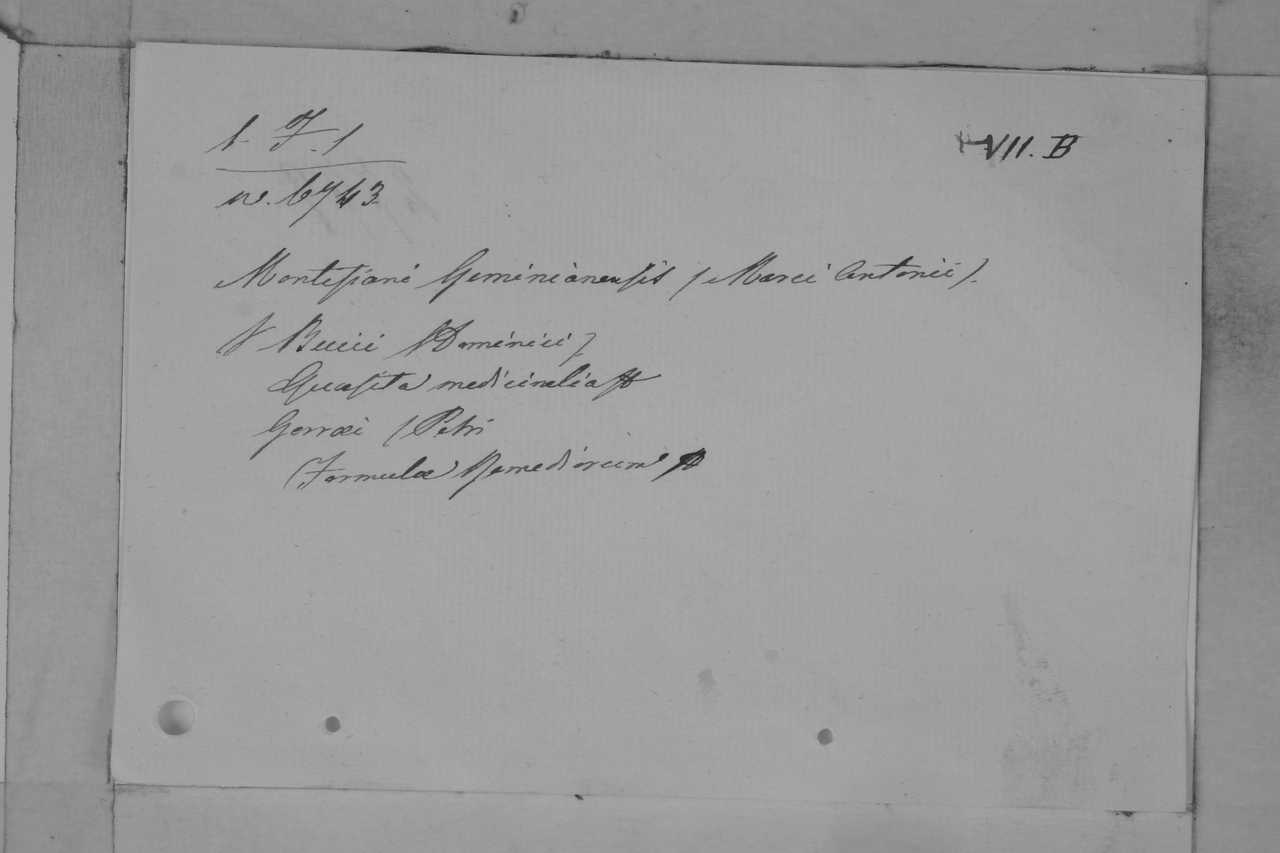 b. F. 1
VII. B
nr. 6743
Montesiani Geminianensis / Marci Antonii /.
V Bucii / Dominici /
Quaesita medicinalia
Gorraei / Petri
Formulae Remediorum